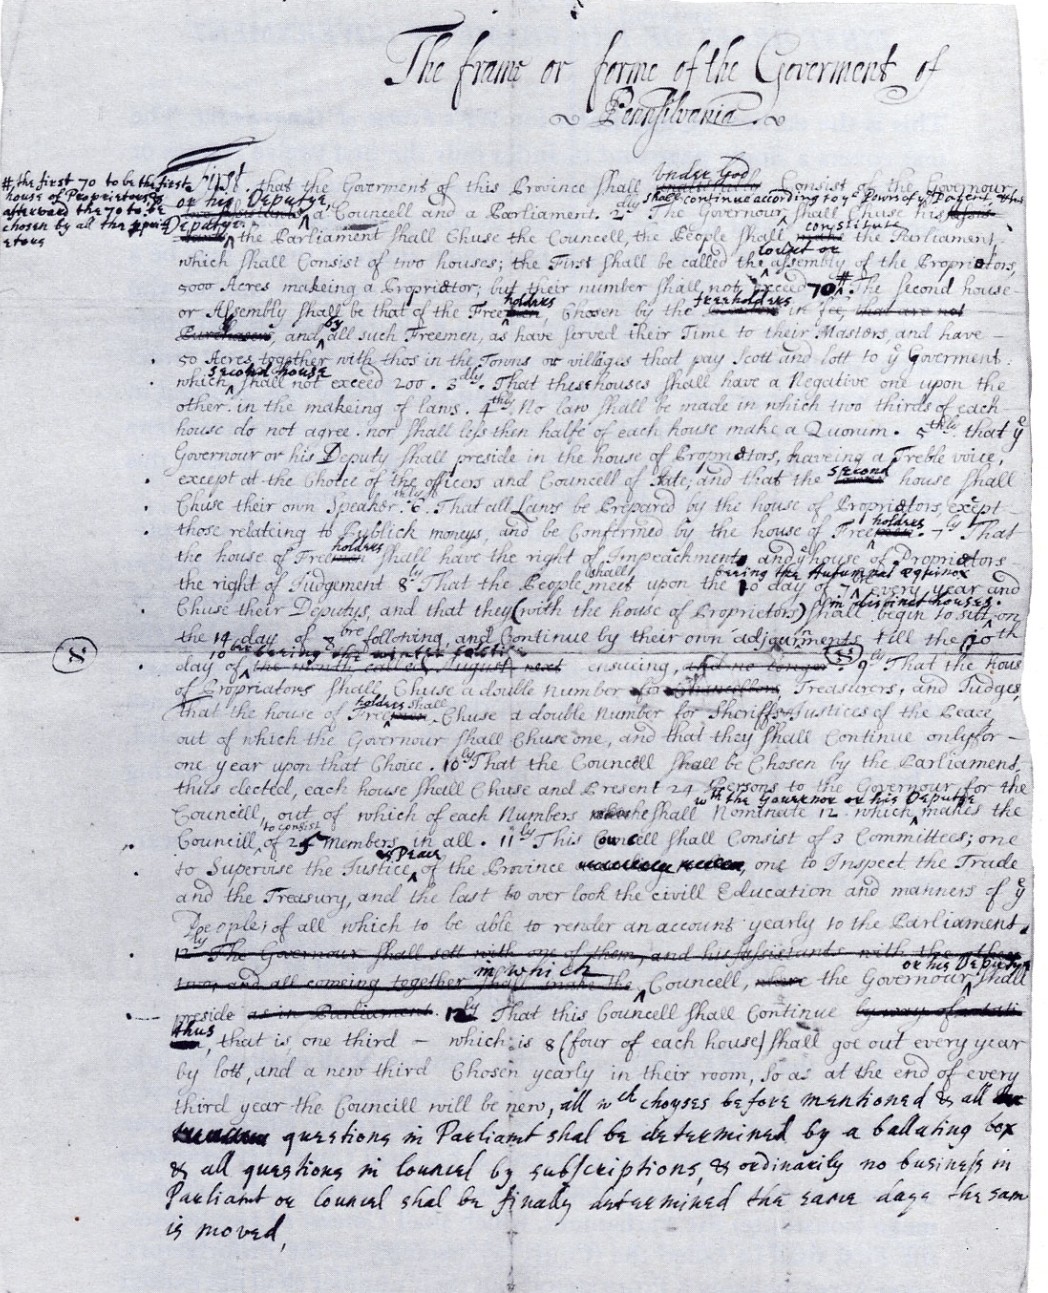 The frame or forme of the Goverment of
Pennsilvania.
#, the first 70 to be the first
house of Proprietors &
afterward the 70 to be
chosen by all the
etous
Under God
First. that the Goverment of this Province shall Consist of the Governour
or his Deputye, shall continue according to ye Powr of ye Patent, & his
a Councell and a Parliament. 2dly The Governour shall Chuse his
Deputye. constitute
the Parliament shall Chuse the Councell, the People shall make the Parliament,
lower or
which shall Consist of two houses; the First shall be called the assembly of the Proprietors,
5000 Acres makeing a Proprietor; but their number shall not exceed 70#. The second house
holders freeholders
or Assembly shall be that of the Freemen Chosen by the in fee, that are not
by
Purchasers, and all such Freemen, as have served their Time to their Masters, and have
50 Acres together with thos in the Towns or villiges that pay Scott and lott to ye Goverment:
second house
which shall not exceed 200. 3dly. That these houses shall have a Negative one upon the
other. in the makeing of laws. 4thly. No law shall be made in which two thirds of each
house do not agree. nor shall less then halfe of each house make a Quorum. 5thly. that ye
Governour or his Deputy shall preside in the house of Proprietors, haveing a Treble voice,
second
except at the Choice of the officers and Councell of State; and that the house shall
Chuse their own Speaker. 6. That all Laws be Prepared by the house of Proprietors, except
holders
those relateing to Publick moneys, and be Confirmed by the house of Freemen. 7ly That
holders
the house of Freemen shall have the right of Inpeachments and ye house of Proprietors
shall being the Autumnal equinox
the right of Judgement 8ly That the People meet upon the 10 day of 7 every year and
in distinct houses.
Chuse their Deputys, and that they (with the house of Proprietors) shall begin to sitt on
the 14 day of 8bre following, and Continue by their own adjournments till the 10th
10 being the winter
8
day of the month called August next ensuing, and no longer 9ly That the hous
of Propriators shall Chuse a double number for Chancellors, Treasurers, and Judges,
holders shall
that the house of Freemen Chuse a double Number for Sheriffs Justices of the Peace,
out of which the Governour shall Chuse one, and that they shall Continue only for
one year upon that Choice. 10ly That the Councell shall be Chosen by the Parliament,
thus elected, each house shall Chuse and Present 24 Persons to the Governour for the
wth the Governor or his Deputye
Councill, out of which of each Numbers he shall Nominate 12 which makes the
to consist
Councill, of 25 Members in all. 11ly This Councell shall Consist of 3 Committees; one
& Peace
to Supervise the Justice of the Province , one to Inspect the Trade
and the Treasury, and the last to over look the civill Education and manners of ye
People; of all which to be able to render an account yearly to the Parliament.
12ly The Governour shall sett with one of them, and his Assistants with the other
in which or his Deputy
two, and all comeing together shall make the Councell, where the Governour shall
preside as in Parliament. 12ly That this Councell shall Continue by way of
thus
, that is, one third - which is 8 (four of each house) shall goe out every year
by lott, and a new third Chosen yearly in their room, so as at the end of every
third year the Councill will be new, all wch chouses before mentioned & all
questions in Parliamt shal be determined by a ballating box
& all questions in Councel by subscriptions, & ordinarily no business in
Parliamt or Councel shal be finally determined the same daye the same
is moved,